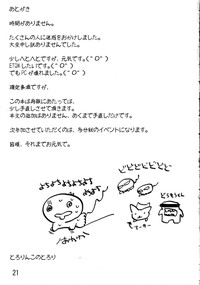 あとがき
時間がありません。
たくさんの人に迷惑をおかけしました。
大変申し訳ありませんでした。
少しへとへとですが、元気です。
でもPCが壊れました。
諸定多事ですが、
この本は再販にあたっては、
少し手直しさせて頂きます。
本文の追加はありません、あくまで手直しだけです。
次参加させていただくのは、多分秋のイベントになります。
皆様、それまでお元気で。
よちよちよちよちよち
どどどどどどど
とろりんこのとろり
21